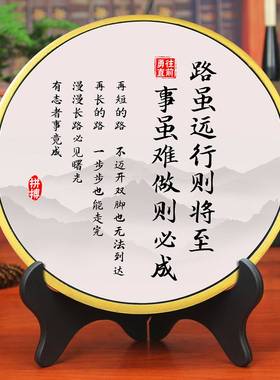 路虽远行则将至
事虽难做则必成
勇往
直前
再短的路 不迈开双脚也无法到达
再长的路 一步步也能走完
漫漫长路必见曙光
有志者事竟成
拼搏